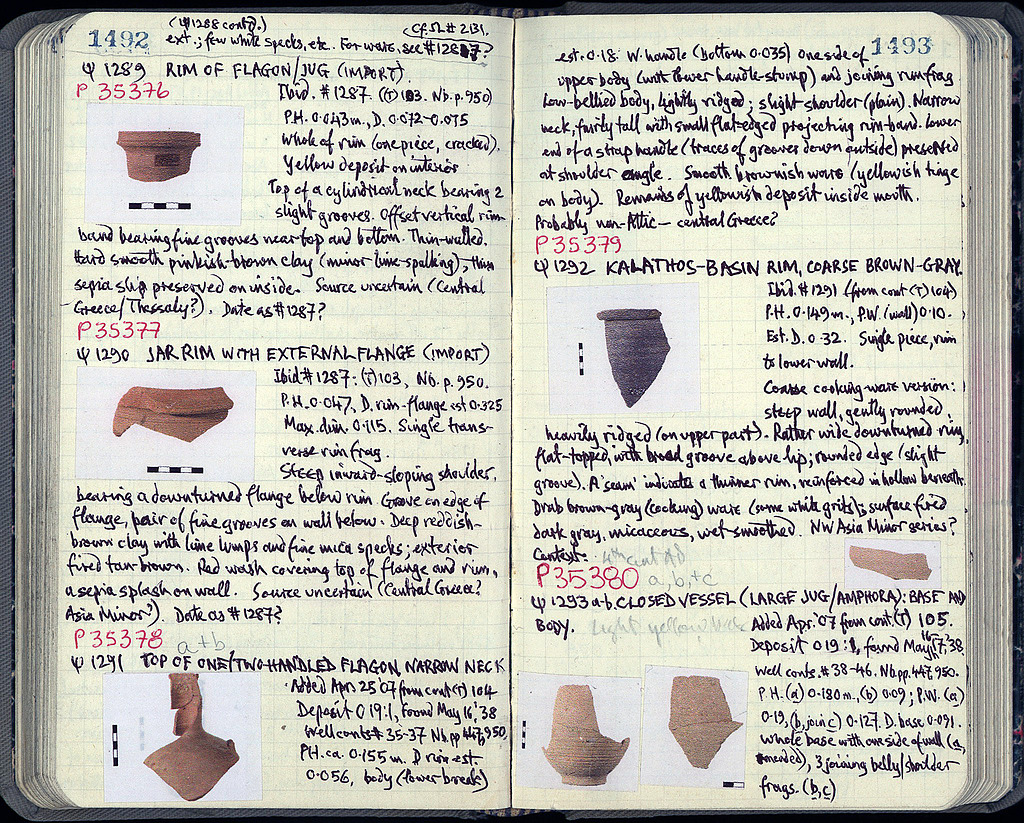 (Ψ1288 contd.)
cf. SL# 2131.
1492
ext.; few white specks, etc. For ware, see #1287?
Ψ 1289 RIM OF FLAGON/JUG (IMPORT)
P 35376
Ibid. #1287. (T)103. Nb. p. 950)
P.H. 0.043 m., D. 0.072-0.075
Whole of rim (one piece, cracked).
Yellow deposit on interior
Top of a cylindrical neck bearing 2
slight grooves. Offset vertical rim-
band bearing fine grooves near top and bottom. Thin-walled.
Hard smooth pinkish-brown clay (minor lime-spalking), thin
sepia slip preserved on inside. Source uncertain (Central
Greece/Thessaly?). Date as #1287?
P 35377
Ψ 1290 JAR RIM WITH EXTERNAL FLANGE (IMPORT)
Ibid #1287: (T)103, Nb. p. 950.
P.H. 0.047, D. rim-flange est 0.325
Max. dim. 0.115. Single trans-
verse rim frag.
Steep inward-sloping shoulder,
bearing a downturned flange below rim. Groove on edge of
flange, pair of fine grooves on wall below. Deep reddish-
brown clay with lime lumps and fine mica specks; exterior
fired tan-brown. Red wash covering top of flange and rim,
a sepia splash on wall. Source uncertain (Central Greece?
Asia Minor?). Date as #1287?
P 35378 a+b
Ψ 1291 TOP OF ONE/TWO-HANDLED FLAGON, NARROW NECK
Added Apr. 25 '07 from cont (T) 104
Deposit O 19:1, found May 16, '38
Well conts # 35-37 Nb pp 447, 950
P.H. ca. 0.155 m. D rim est.
0.056, body (lower break)
1493
est. 0.18. W. handle (bottom 0.035) one side of
upper body (with lower handle-stump) and joining rim frag
Low-bellied body, lightly ridged; slight shoulder (plain). Narrow
neck, fairly tall with small flat-edged projecting rim-band. Lower
end of a strap handle (traces of grooves down outside) preserved
at shoulder angle. Smooth brownish ware (yellowish tinge
on body). Remains of yellowish deposit inside mouth.
Probably non-Attic — central Greece?
P 35379
Ψ 1292 KALATHOS-BASIN RIM, COARSE BROWN-GRAY.
Ibid. #1291 (from cont (T) 104)
P.H. 0.149 m., P.W. (wall) 0.10.
Est. D. 0.32. Single piece, rim
to lower wall.
Coarse cooking-ware version:
steep wall, gently rounded,
heavily ridged (on upper part). Rather wide downturned rim,
flat-topped, with broad groove above lip; rounded edge (slight
groove). A 'seam' indicates a thinner rim, reinforced in hollow beneath.
Drab brown-gray (cooking) ware (some white grits); surface fired
dark gray, micaceous, wet-smoothed. NW Asia Minor series?
Context: 4th cent AD
P 35380 a, b, +c
Ψ 1293 a-b. CLOSED VESSEL (LARGE JUG/AMPHORA): BASE AND
BODY. Light yellow
Added Apr. '07 from cont. (T) 105.
Deposit O 19:1, found May 16, 17, '38,
Well conts. # 38-46. Nb. pp. 447, 950.
P.H. (a) 0.180 m., (b) 0.09; P.W. (a)
0.19, (b, join c) 0.127. D. base 0.091.
Whole base with one side of wall (a,
mended), 3 joining belly/shoulder
frags. (b, c)